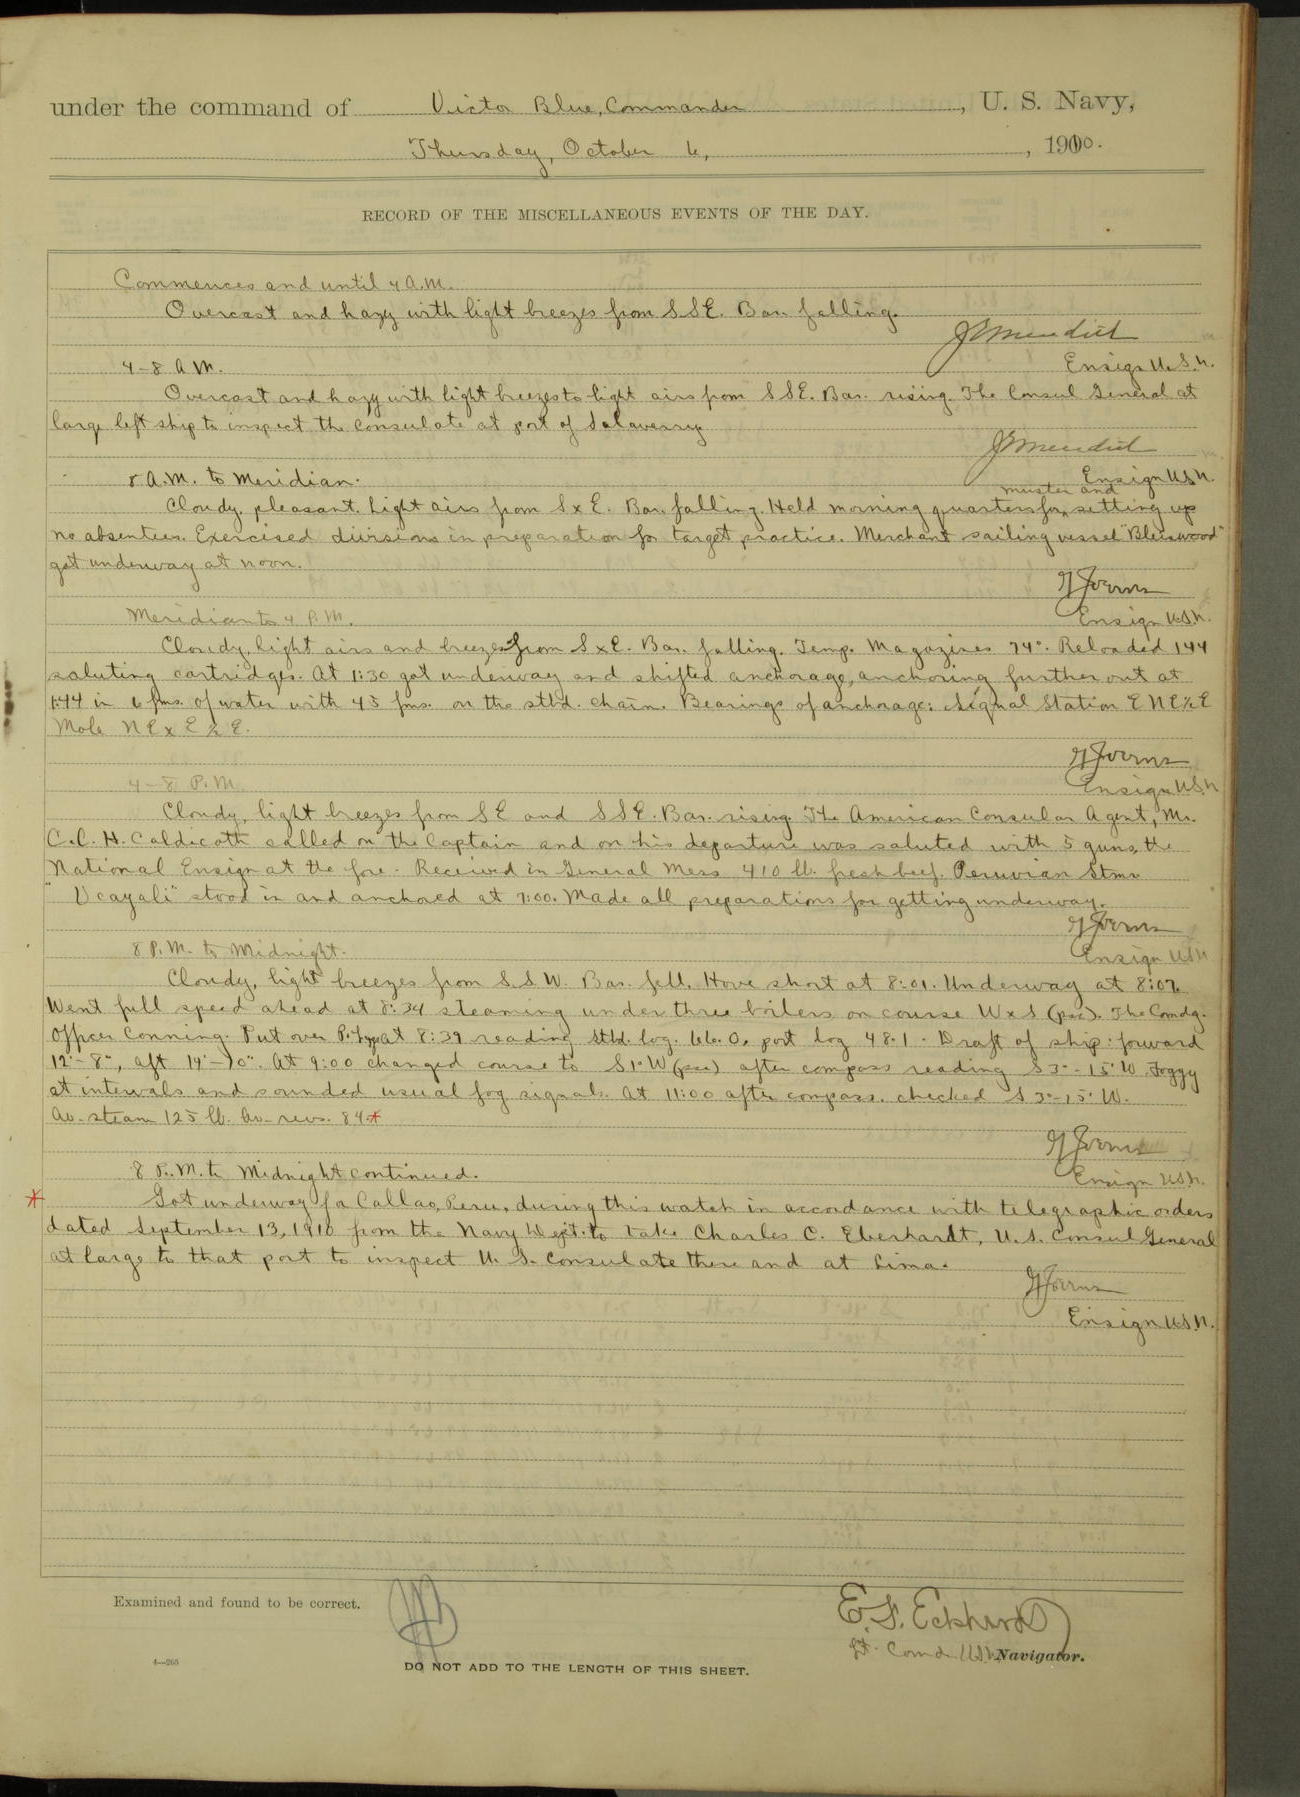 under the command of Victor Blue, Commander, U. S. Navy,
Thursday, October 6, 1910.
RECORD OF THE MISCELLANEOUS EVENTS OF THE DAY.
Commences and until 4 A.M.
Overcast and hazy with light breezes from SSE. Bar. falling.
Ensign U.S.N.
4-8 A M.
Overcast and hazy with light breezes to light airs from SSE. Bar. rising. The Consul General at
large left ship to inspect the consulate at port of Salaverry
Ensign USN.
8 A.M. to Meridian.
muster and
Cloudy, pleasant. Light airs from SxE. Bar. falling. Held morning quarters for setting up
no absentees. Exercised divisions in preparation for target practice. Merchant sailing vessel
got underway at noon.
Ensign U.S.N.
Meridian to 4 P.M.
Cloudy, light airs and breezes from SxE. Bar. falling. Temp. Magazines 74°. Reloaded 144
saluting cartridges. At 1:30 got underway and shifted anchorage, anchoring further out at
1:44 in 6 fms. of water with 45 fms. on the stbd. chain. Bearings of anchorage: Signal Station E N E ½ E
Mole N E x E ½ E.
Ensign U.S.N
4-8 P.M.
Cloudy, light breezes from SE and SSE. Bar. rising. The American Consular Agent, Mr.
C.C. H. Caldicott called on the Captain and on his departure was saluted with 5 guns, the
National Ensign at the fore. Received in General Mess 410 lb. fresh beef. Peruvian Stmr
"Ucayali" stood in and anchored at 7:00. Made all preparations for getting underway.
Ensign USN
8 P.M. to Midnight.
Cloudy, light breezes from S.S.W. Bar. fell. Hove short at 8:01. Underway at 8:07.
Went full speed ahead at 8:34 steaming under three boilers on course WxS (psc). The Comdg.
Officer conning. Put over P. logs at 8:39 reading stbd. log. 66.0, port log 48.1. Draft of ship: forward
12'-8", aft 14'-10". At 9:00 changed course to S 1° W (psc) after compass reading S 3°-15' W. Foggy
at intervals and sounded usual fog signals. At 11:00 after compass. checked S 3°-15' W.
Av. steam 125 lb. Av. revs. 84 *
Ensign U.S.N.
8 P.M. to Midnight continued.
* Got underway for Callao, Peru, during this watch in accordance with telegraphic orders
dated September 13, 1910 from the Navy Dept. to take Charles C. Eberhardt, U.S. Consul General
at large to that port to inspect U. S. Consulate there and at Lima.
Ensign U.S.N.
Examined and found to be correct.
E. S. Eckhardt
Lt. Comdr USN Navigator.
4—265
DO NOT ADD TO THE LENGTH OF THIS SHEET.